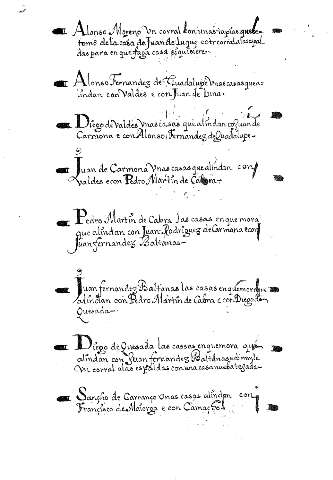 Alonso Moreno vn corral con unas tapias que se
tomo de la casa de Juan de Luque
das para en que faga casa si quisiere
Alonso Fernandez de Guadalupe vnas casas que a
lindan con Valdes e con Juan de Luna
Diego de Valdes vnas casas que alindan con Juan de
Carmona e con Alonso Fernandez de Guadalupe
Juan de Carmona vnas casas que alindan con
Valdes e con Pedro Martin de Cabra
Pedro Martin de Cabra las casas en que mora
que alindan con Juan Rodriguez de Carmona e con
Juan fernandez Baltanas
Juan fernandez Baltanas las casas en que mora que
alindan con Pedro Martin de Cabra e con Diego de
Quesada
Diego de Quesada las cassas en que mora que
alindan con Juan fernandez Baltanas
vn corral a las espaldas con una casa
Sancho de Carranço vnas casas alindan con
Francisco de e con Camacho